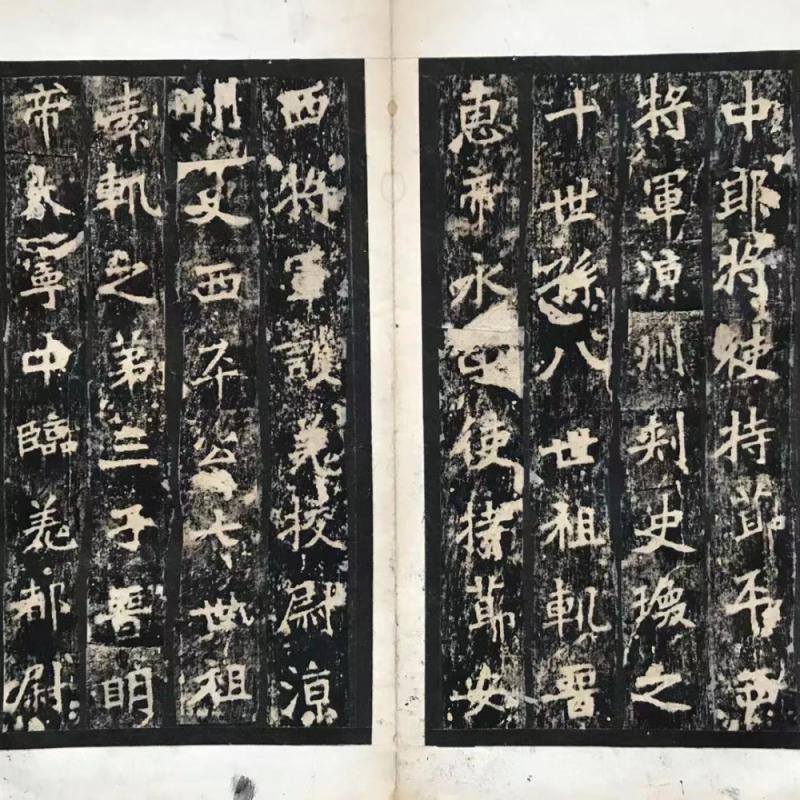 中郎將使持節平西
將軍涼州刾史瑍之
十世孫八世祖軌晉
惠帝永使持節安
西將軍護羌校尉涼
州史西平公七世祖
素軌之第三子晉明
帝太寧中臨羌都尉